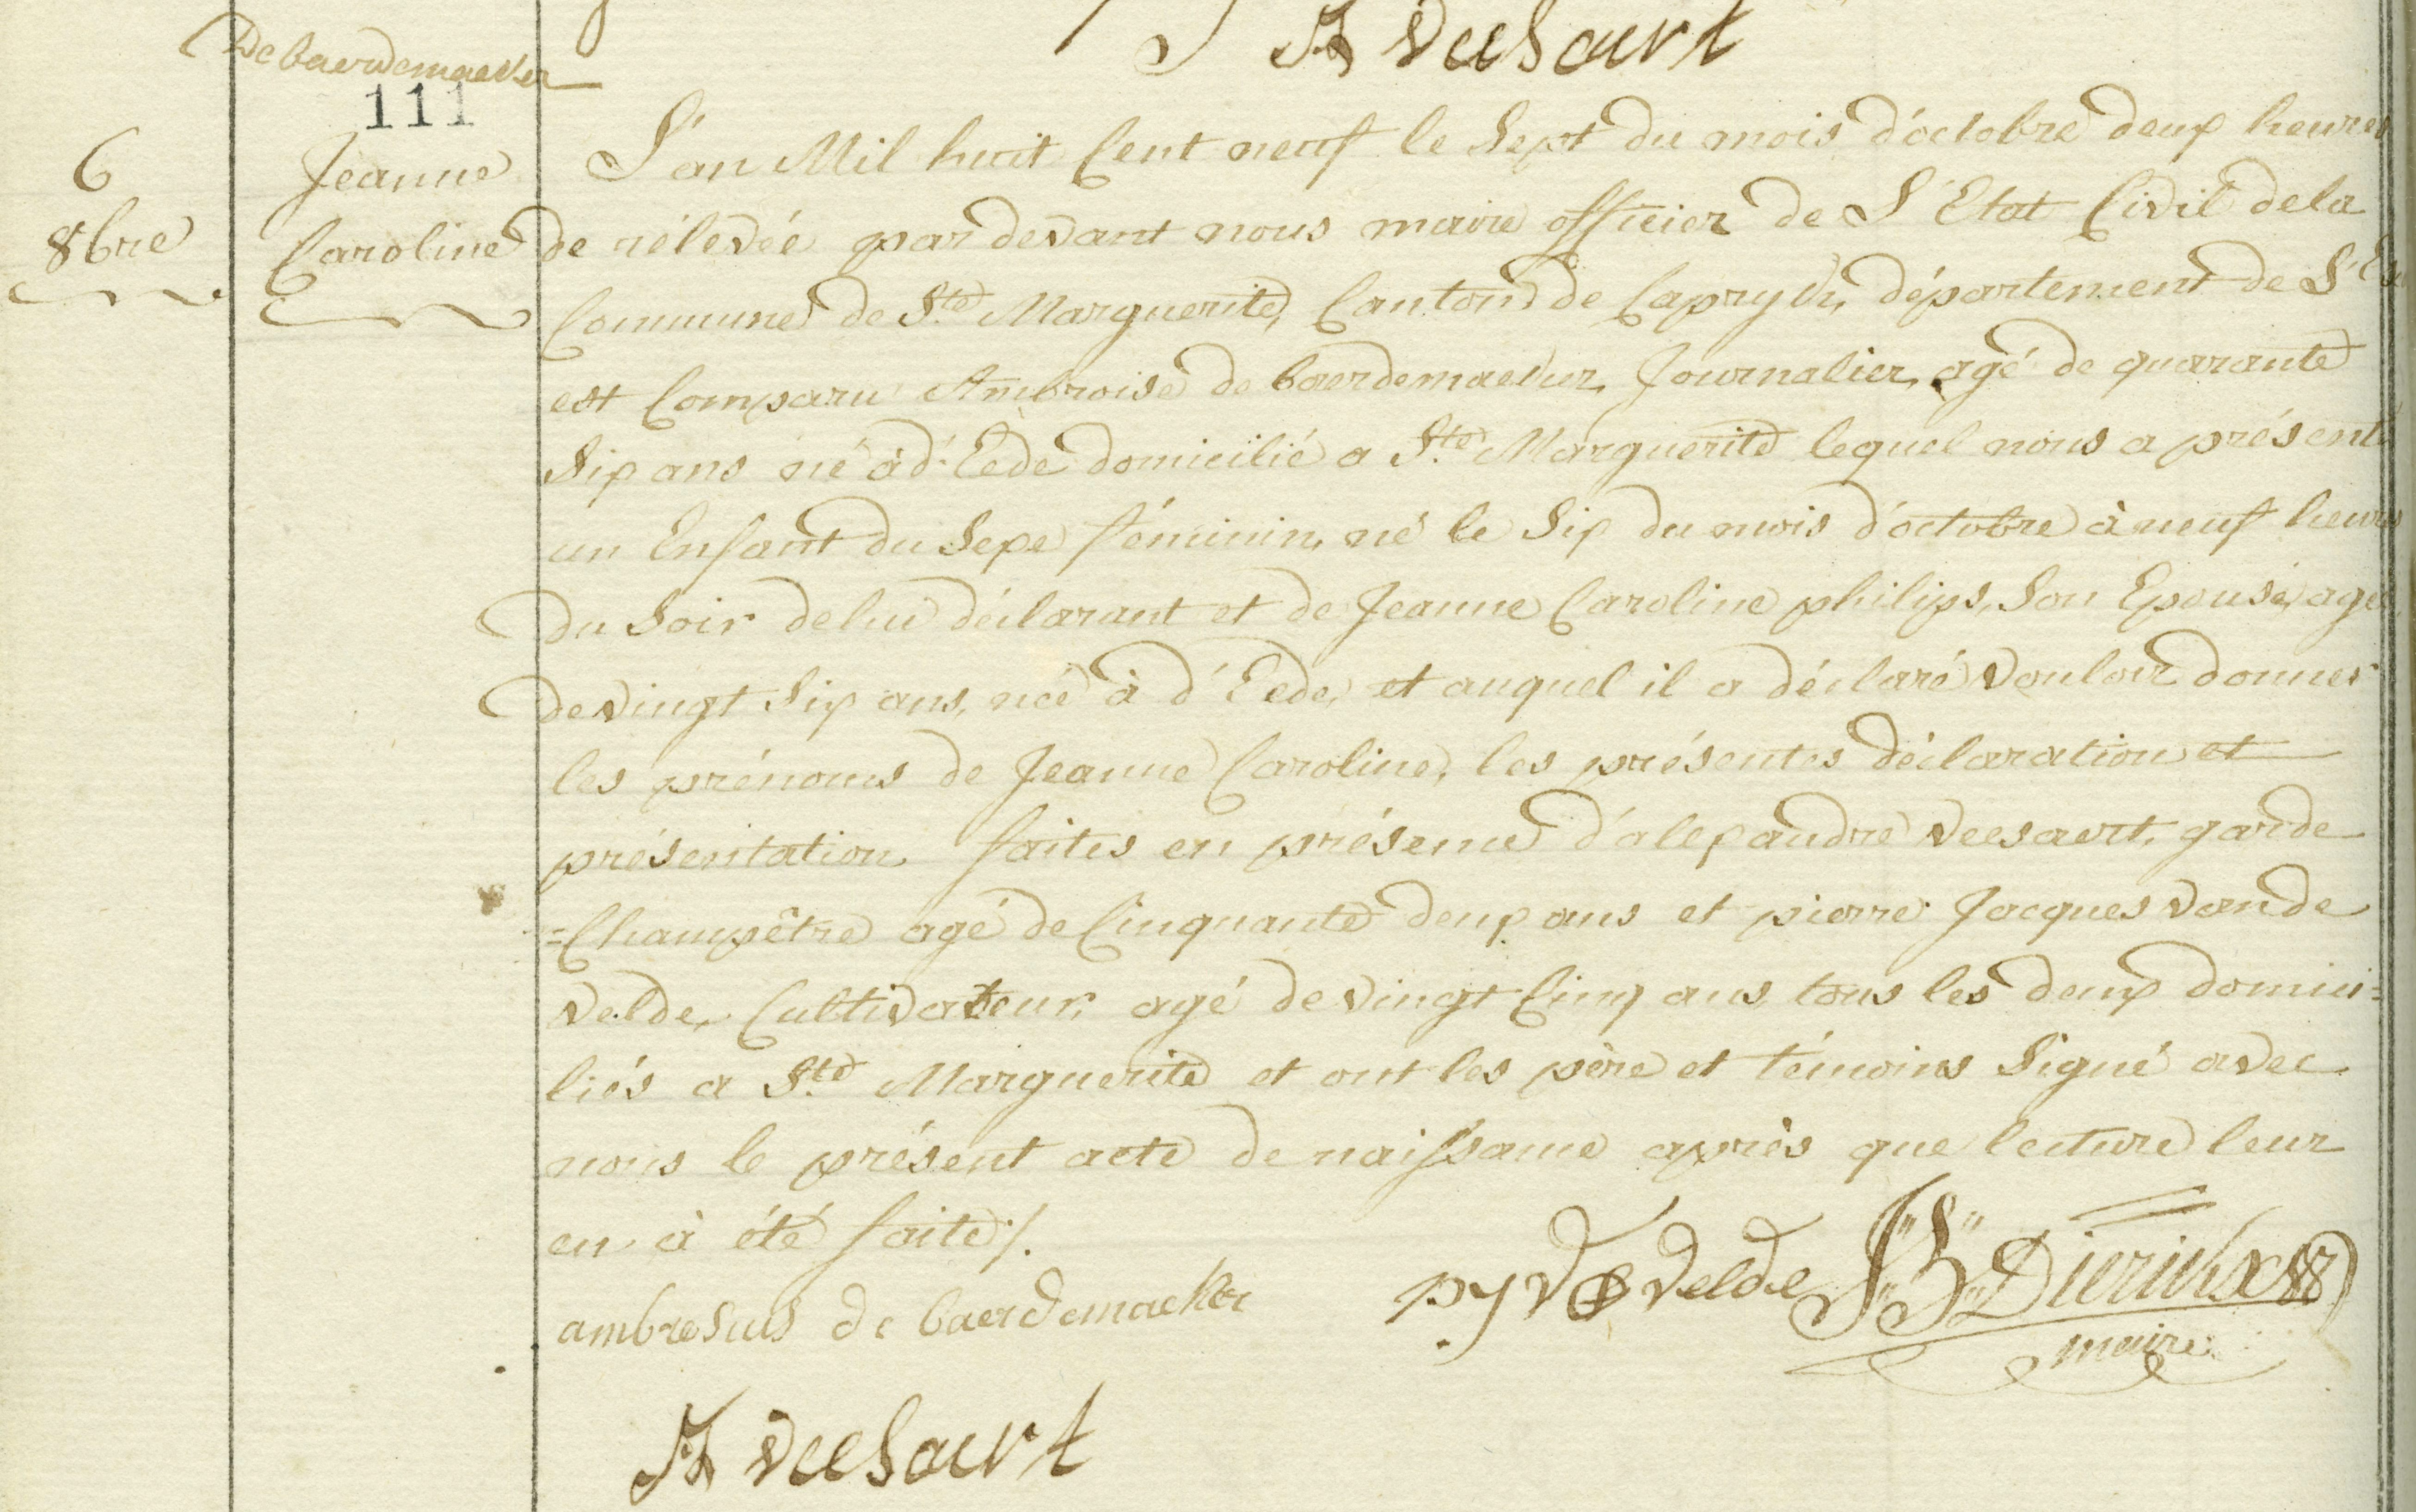 A Veesaert
De baerdemaeker
111
6
8bre
Jeanne
Caroline
L'an Mil huit Cent neuf le Sept du mois d'octobre deux heures
de rélevée par devant nous maire officier de L'Etat Civil dela
Commune de Ste Marguerite, Canton de Capryk, département de L'Es
est Comparu Ambroise de baerdemaeker, Journalier, agé de quarante
Six ans né à d'Eede domicilié a Ste Marguerite lequel nous a présenté
un Enfant du Sexe féminin, né le Six du mois d'octobre à neuf heures
du Soir de lui déclarant et de Jeanne Caroline philips, Son Epouse, agé
de vingt Six ans, née à d'Eede, et auquel il a déclaré vouloir donner
les prénoms de Jeanne Caroline, les présentes déclaration et
présentation faites en présence d'alexandre veesaert, garde
=Champêtre agé de Cinquante deux ans et pierre Jacques van de
velde, Cultivateur, agé de vingt Cinq ans, tous les deux domici=
liés a Ste Marguerite et ont les père et témoins Signé avec
nous le présent acte de naissance après que lecture leur
en à été faite ./.
ambrosius de baerdemaeker
pj vd velde
Dierickx
maire
A Veesaert